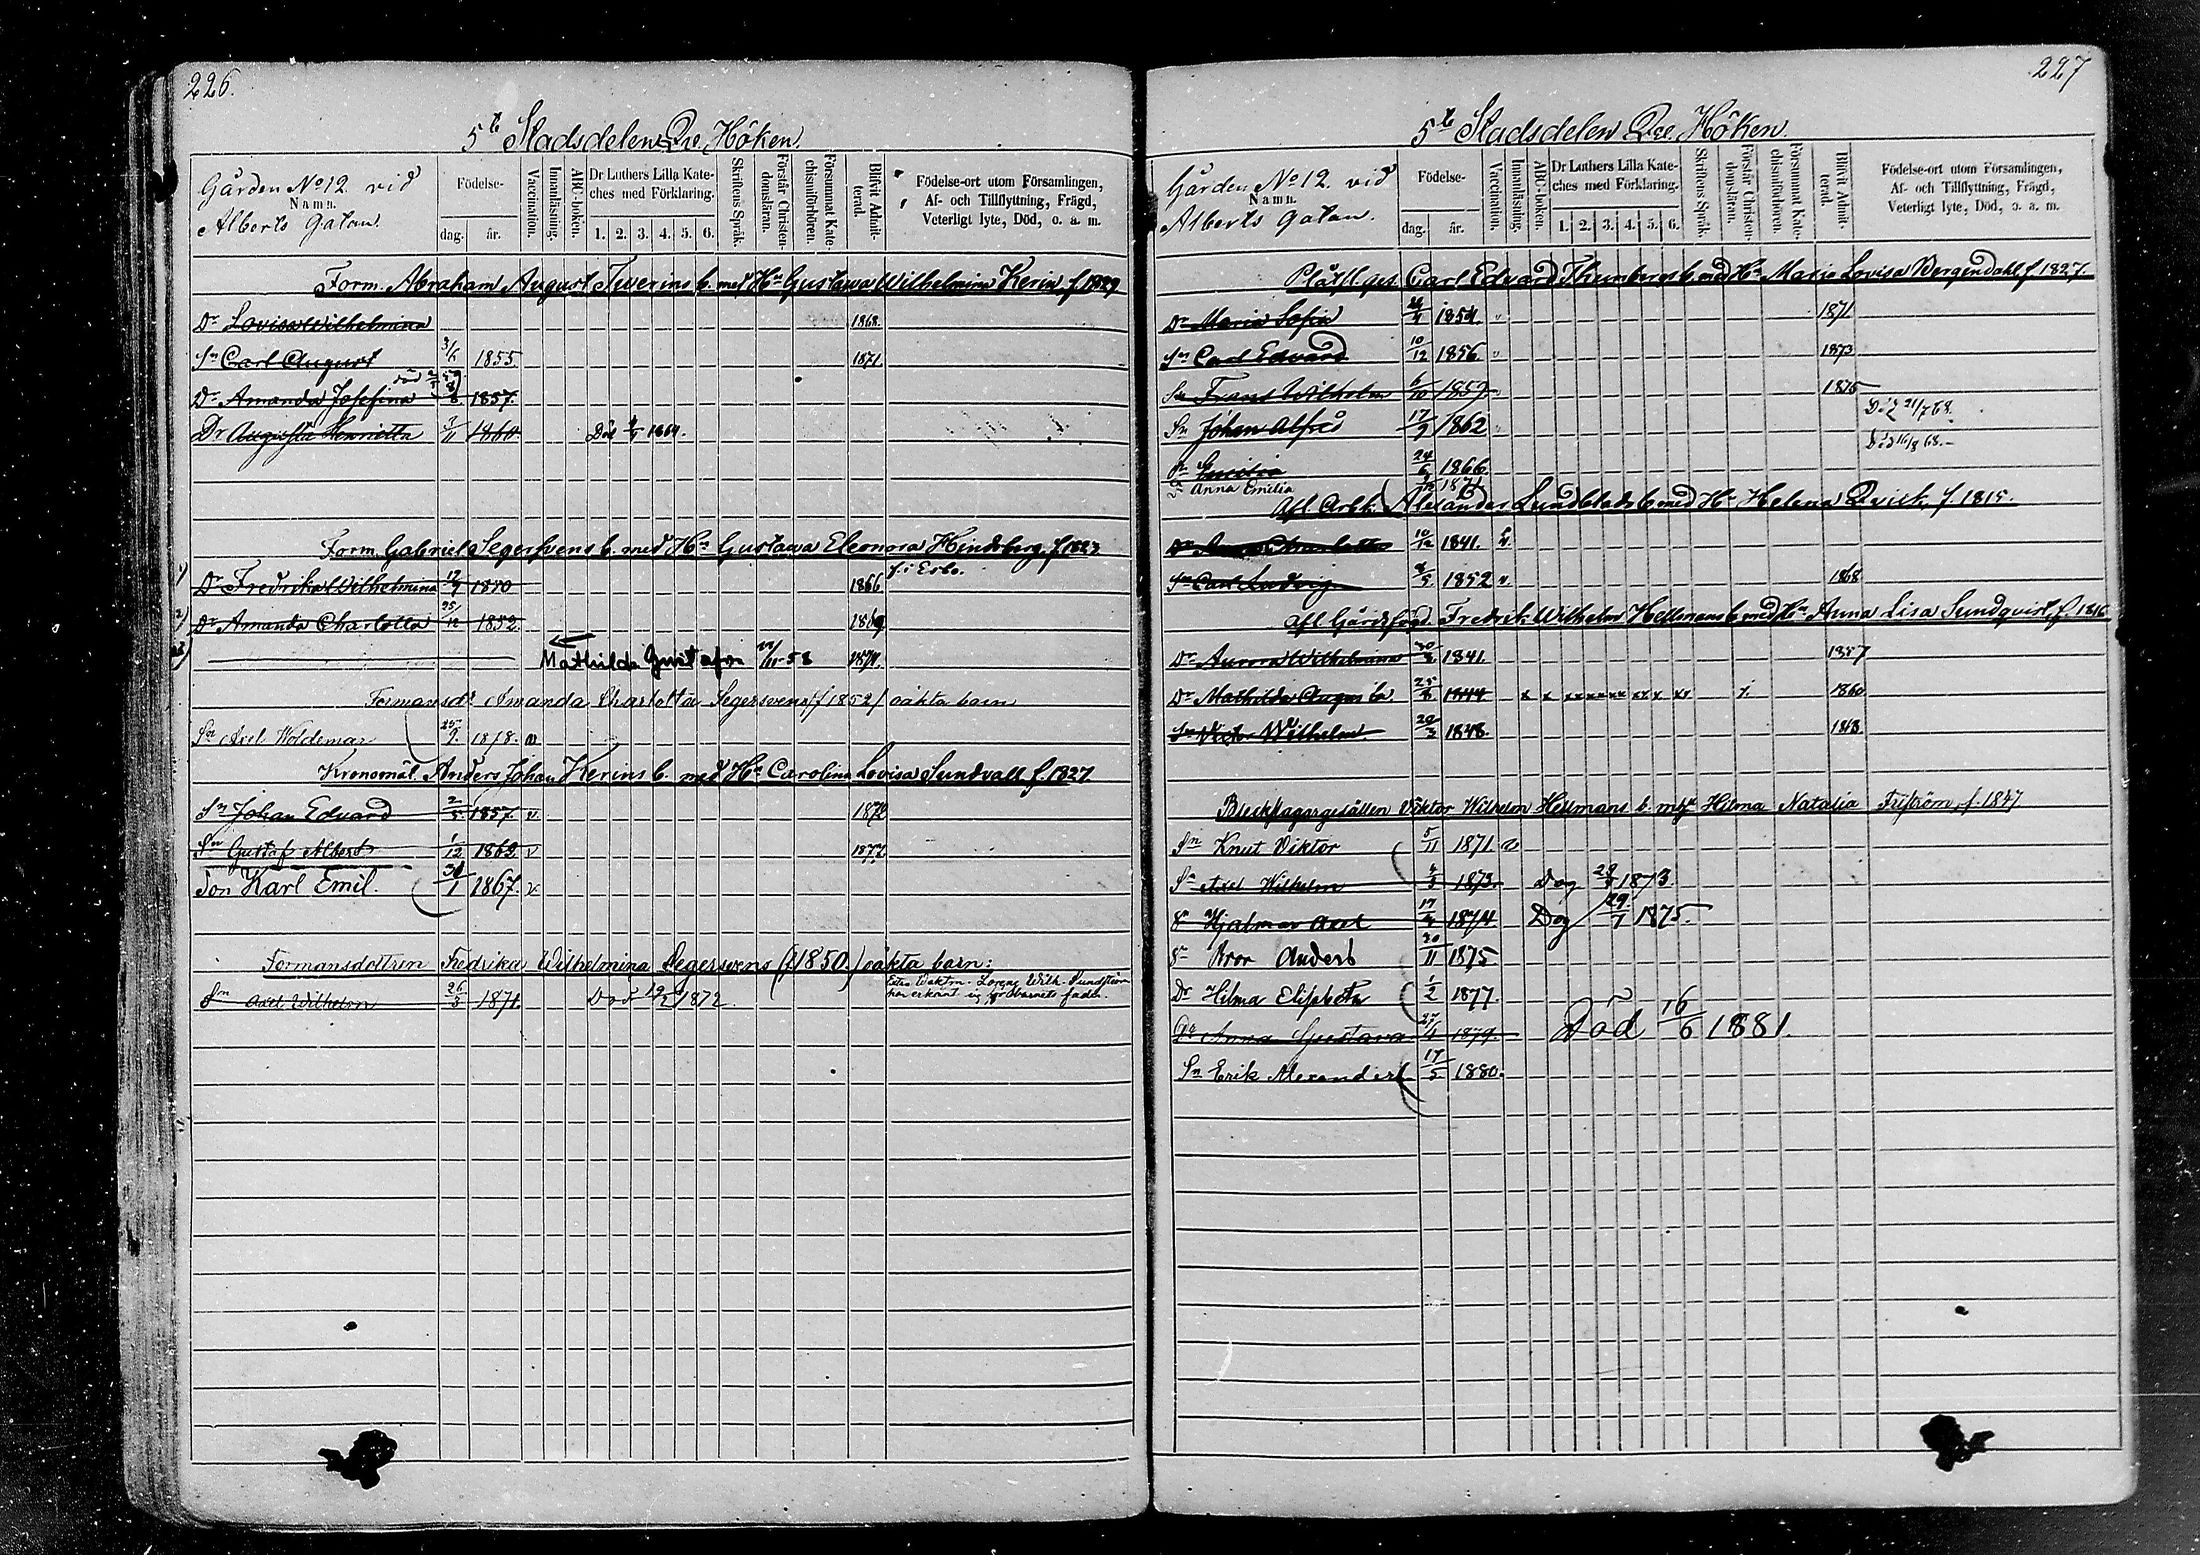 226.
5te Stadsdelen Qre. Höken.
Gården No 12 vid
Namn.
Alberts Gatan.
Födelse-
dag. år.
Vaccination.
Innanläsning.
ABC-boken.
Dr Luthers Lilla Kate-
ches med Förklaring.
1. 2. 3. 4. 5. 6.
Skriftens Språk.
Förstår Christen-
domsläran.
Försummat Kate-
chismiförhören.
Blivit Admit-
terad.
Födelse-ort utom Församlingen,
Af- och Tillflyttning, Frägd,
Veterligt lyte, Död, o. a. m.
Form. Abraham August Tverins b. med Hn Gustawa Wilhelmina Kerin f. 1829
Dr Lovisa Wilhelmina 1868
Sn Carl August 3/6 1855 1871
Dr Amanda Josefina 1857
Dr Augusta Henrietta 1860 Död 1864.
Form. Gabriel Segersvens b. med Hn Gustawa Eleonora Hindsberg f. 1823
1) Dr Fredrika Wilhelmina 1866
2) Dr Amanda Charlotta 25/12 1852 1869
Mathilda Gustafva 58 1874
Formansdr Amanda Charlotta Segersvens (f 1852) oäkta barn
Sn Axel Woldemar 1878. v
Kronomål. Anders Johan Kerins b. med Hn Carolina Lovisa Sundvall f. 1827
Sn Johan Edvard 2/5 1857 v 1872
Sn Gustaf Albert 1/12 1862 v 1877
Son Karl Emil. 1867. v
Formansdottren Fredrika Wilhelmina Segersvens (f 1850) oäkta barn:
Sn Axel Wilhelm 26/3 1871 Död 19/2 1872
Extra Waktm. Lorenz Wilh. Sundström
har erkänt sig för barnets fader.
227
5te Stadsdelen Qre. Höken.
Gården No 12. vid
Namn.
Alberts gatan.
Födelse-
dag. år.
Vaccination.
Innanläsning.
ABC-boken.
Dr Luthers Lilla Kate-
ches med Förklaring.
1. 2. 3. 4. 5. 6.
Skriftens Språk.
Förstår Christen-
domsläran.
Försummat Kate-
chismiförhören.
Blivit Admit-
terad.
Födelse-ort utom Församlingen,
Af- och Tillflyttning, Frägd,
Veterligt lyte, Död, o. a. m.
Plåtsl. ges. Carl Edvard Thunbergs b. med Hn Maria Lovisa Bergendahl f. 1827.
Dr Maria Sofia 1854 1871
Sn Carl Edvard 10/12 1856 1873
Sn Frans Wilhelm 1859 1875
Sn Johan Alfred 17/9 1862 Död 21/7 68.
Dr Emilia 24/6 1866 Död 16/8 68.
Dr Anna Emilia 1871
Afl. Arbk. Alexander Lundblads b. med Hn Helena Qvick, f. 1815.
Dr Charlotta 10/12 1841. v
Sn Carl Ludvig 1852 v. 1868
Afl. Gårdsfogd. Fredrik Wilhelm Hellmans b. med Hn Anna Lisa Sundqvist, f. 1816
Dr Aurora Wilhelmina 1841. 1857
Dr Mathilda Augusta. 1844 x x x x x x x x x x x 1860
Sn Victor Wilhelm. 1848. 1863
Bleckslagargesällen Viktor Wilhelm Hellmans b. m. Hn Hilma Natalia Friström, f. 1847
Sn Knut Viktor 5/11 1871 v
Sn Axel Wilhelm 1873. Dog 1873.
Sn Hjalmar Axel 1874 Dog 29/7 1875.
Sn Bror Anders 30/11 1875
Dr Hilma Elisabeth 1/2 1877
Dr Anna Gustava 27/4 1879. Död 16/6 1881.
Sn Erik Alexander 17/5 1880.